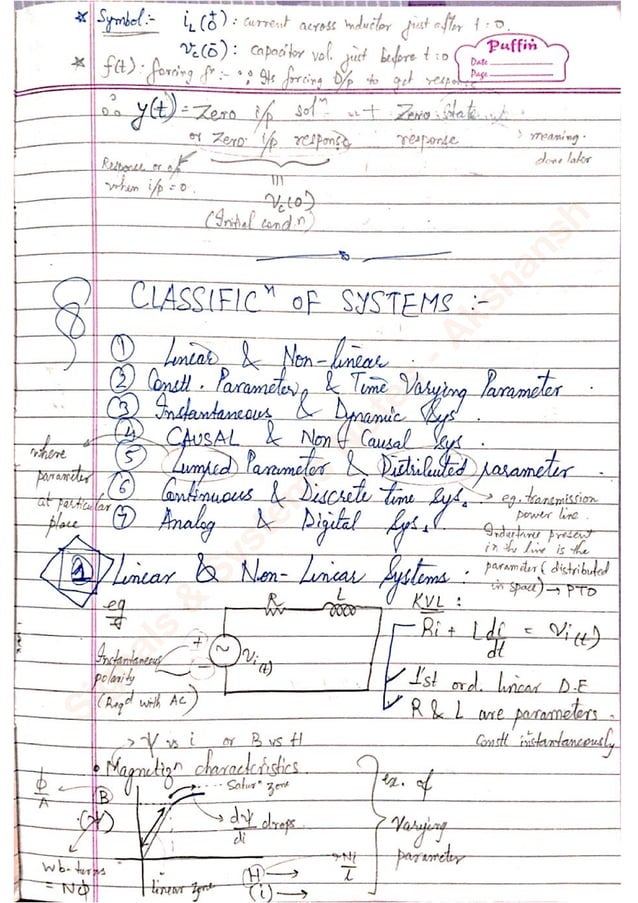 * Symbol:- iL(0+) : current across inductor just after t=0.
vc(0-) : capacitor vol. just before t=0
* f(t) : forcing fn :- ∵ Its forcing O/p to get response
Puffin
Date
Page
∴ y(t) = Zero i/p soln + Zero State
or Zero i/p response response
meaning done later
Response or o/p
when i/p = 0.
vc(0)
(Initial condn)
CLASSIFICn OF SYSTEMS :-
① Linear & Non-linear.
② Constt. Parameter & Time Varying Parameter.
③ Instantaneous & Dynamic Sys.
④ CAUSAL & Non Causal Sys.
⑤ Lumped Parameter & Distributed parameter
⑥ Continuous & Discrete time Sys.
⑦ Analog & Digital Sys.
where
parameter
at particular
place
eg. transmission
power line.
Inductance present
in the line is the
parameter (distributed
in space) → PTO
1 Linear & Non-Linear Systems.
eg
R L
+
~
-
Vi(t)
Instantaneous
polarity
(Reqd with AC)
KVL :
Ri + L di/dt = Vi(t)
1'st ord. linear D.E
R & L are parameters.
Constt instantaneously
→ Ψ vs i or B vs H
• Magnetizn characteristics
Φ/A ← B
(Ψ)
Wb-turns
= NΦ
Saturn zone
dΨ/di drops
linear zone
H → Ni/l
(i) →
ex. of
Varying
parameter
Signals & Systems Notes - Akshansh